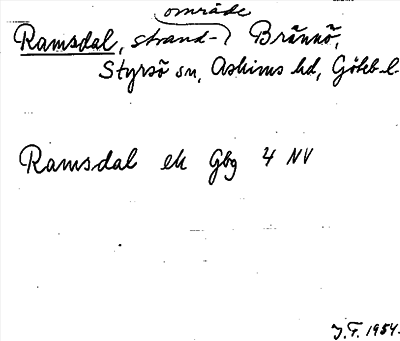 område
Ramsdal, strand- Brännö,
Styrsö sn, Askims hd, Göteb. l.
Ramsdal ek Gbg 4 NV
J.F. 1954.